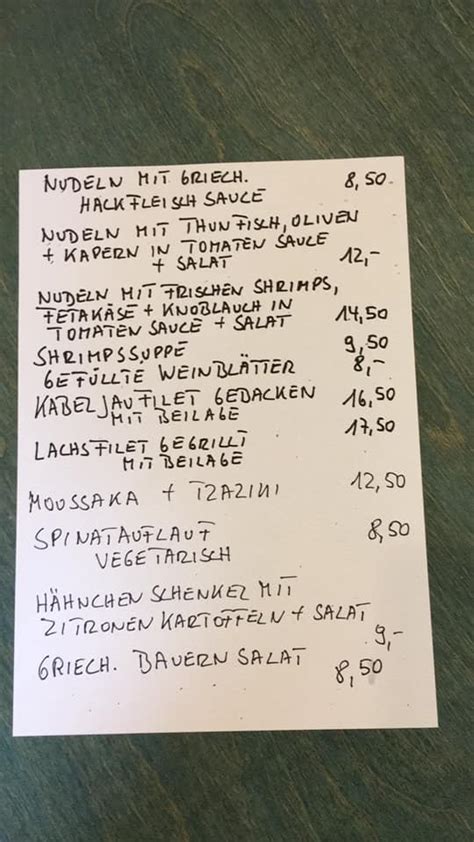 NUDELN MIT GRIECH. 8,50
HACKFLEISCH SAUCE
NUDELN MIT THUNFISCH, OLIVEN
+ KAPERN IN TOMATEN SAUCE
+ SALAT 12,-
NUDELN MIT FRISCHEN SHRIMPS,
FETAKÄSE + KNOBLAUCH IN
TOMATEN SAUCE + SALAT 14,50
SHRIMPSSUPPE 9,50
GEFÜLLTE WEINBLÄTTER 8,-
KABELJAUFILET GEBACKEN 16,50
MIT BEILAGE
LACHSFILET GEGRILLT 17,50
MIT BEILAGE
MOUSSAKA + TZAZIKI 12,50
SPINATAUFLAUF 8,50
VEGETARISCH
HÄHNCHEN SCHENKEL MIT
ZITRONEN KARTOFFELN + SALAT
9,-
GRIECH. BAUERN SALAT 8,50